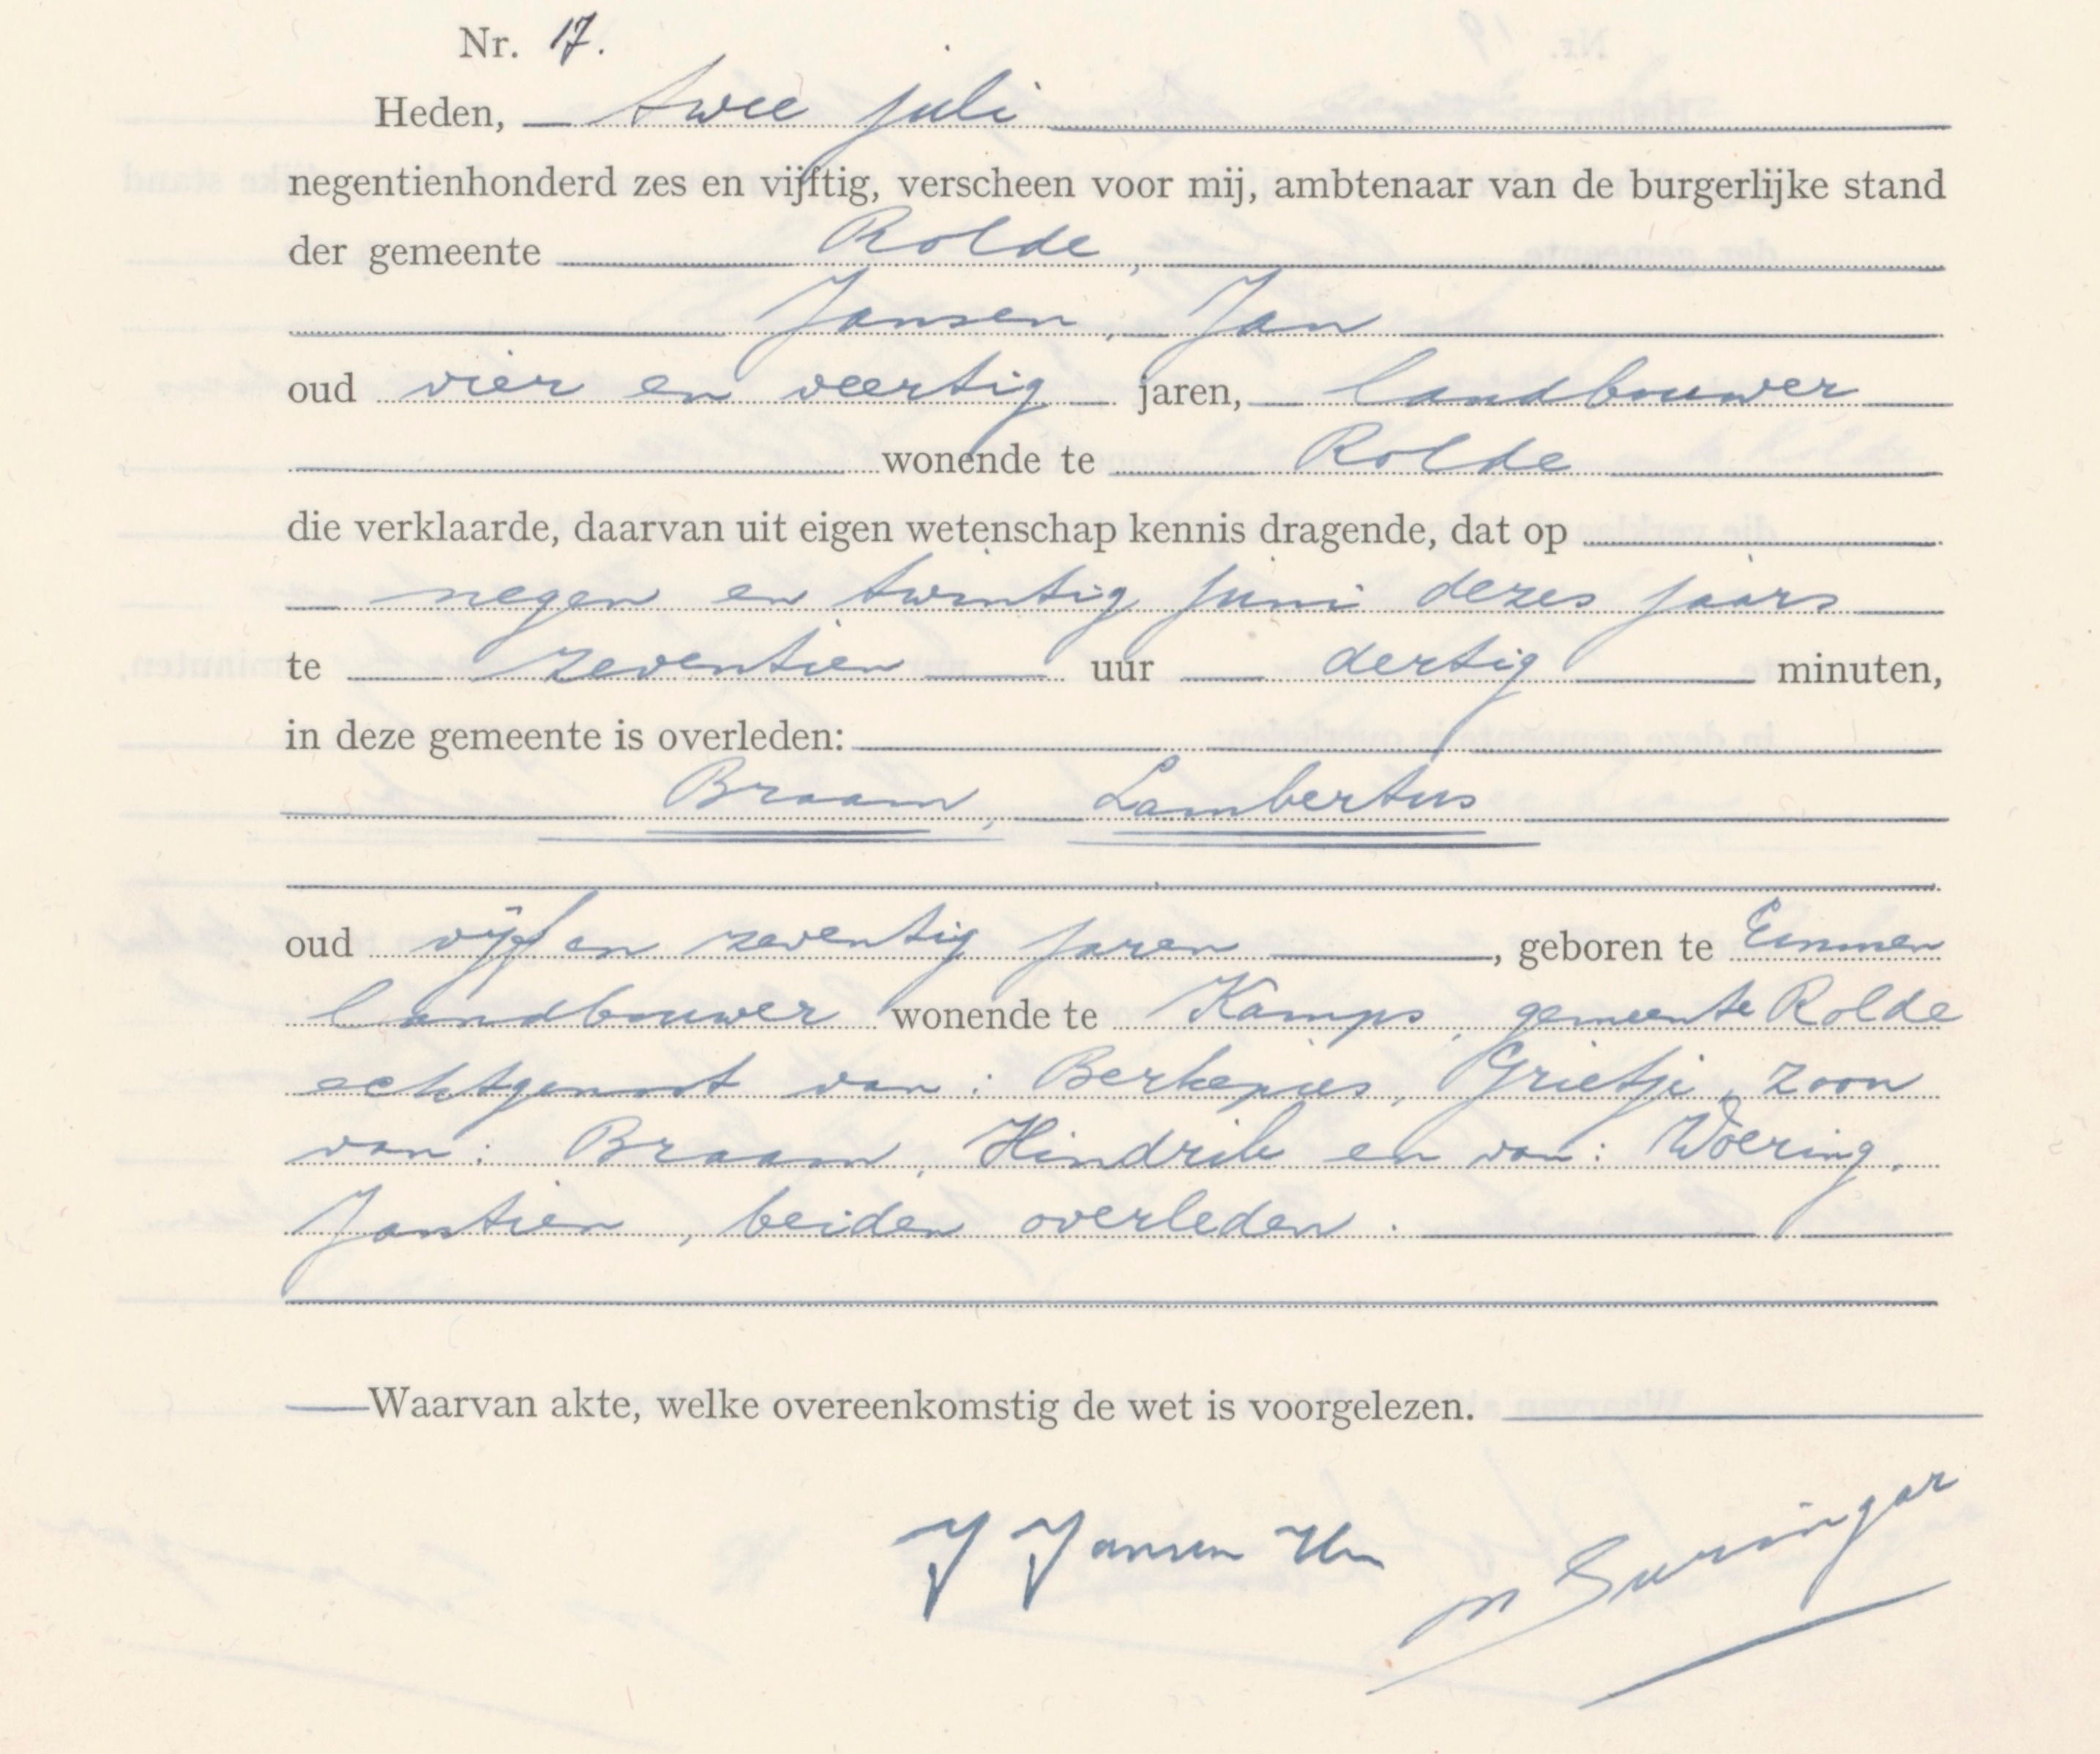 Nr. 17.
Heden, twee juli
negentienhonderd zes en vijftig, verscheen voor mij, ambtenaar van de burgerlijke stand
der gemeente Rolde,
Jansen, Jan
oud vier en veertig jaren, landbouwer
wonende te Rolde
die verklaarde, daarvan uit eigen wetenschap kennis dragende, dat op
negen en twintig juni dezes jaars
te zeventien uur dertig minuten,
in deze gemeente is overleden:
Braam, Lambertus
oud vijf en zeventig jaren, geboren te Emmen
landbouwer wonende te Kamps, gemeente Rolde
echtgenoot van: Berkepies, Grietje, zoon
van: Braam, Hindrik en van: Woering,
Jantien, beiden overleden.
Waarvan akte, welke overeenkomstig de wet is voorgelezen.
J Jansen Hzn
Suringar